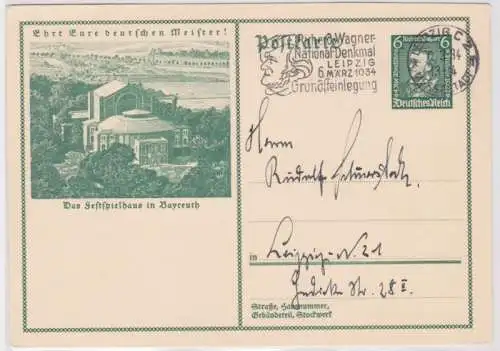 Ehrt Eure deutschen Meister!
Das Festspielhaus in Bayreuth
Postkarte
Richard-Wagner-
National-Denkmal
LEIPZIG
6. MÄRZ 1934
Grundsteinlegung
LEIPZIG C 2
6 6
Deutsches Reich
Herrn
Rudolf
in Leipzig N. 21
Str. 28 II.
Straße, Hausnummer,
Gebäudeteil, Stockwerk